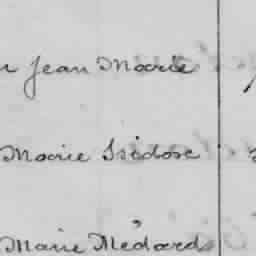 Jean Marie
Marie Isidore
Marie Médard